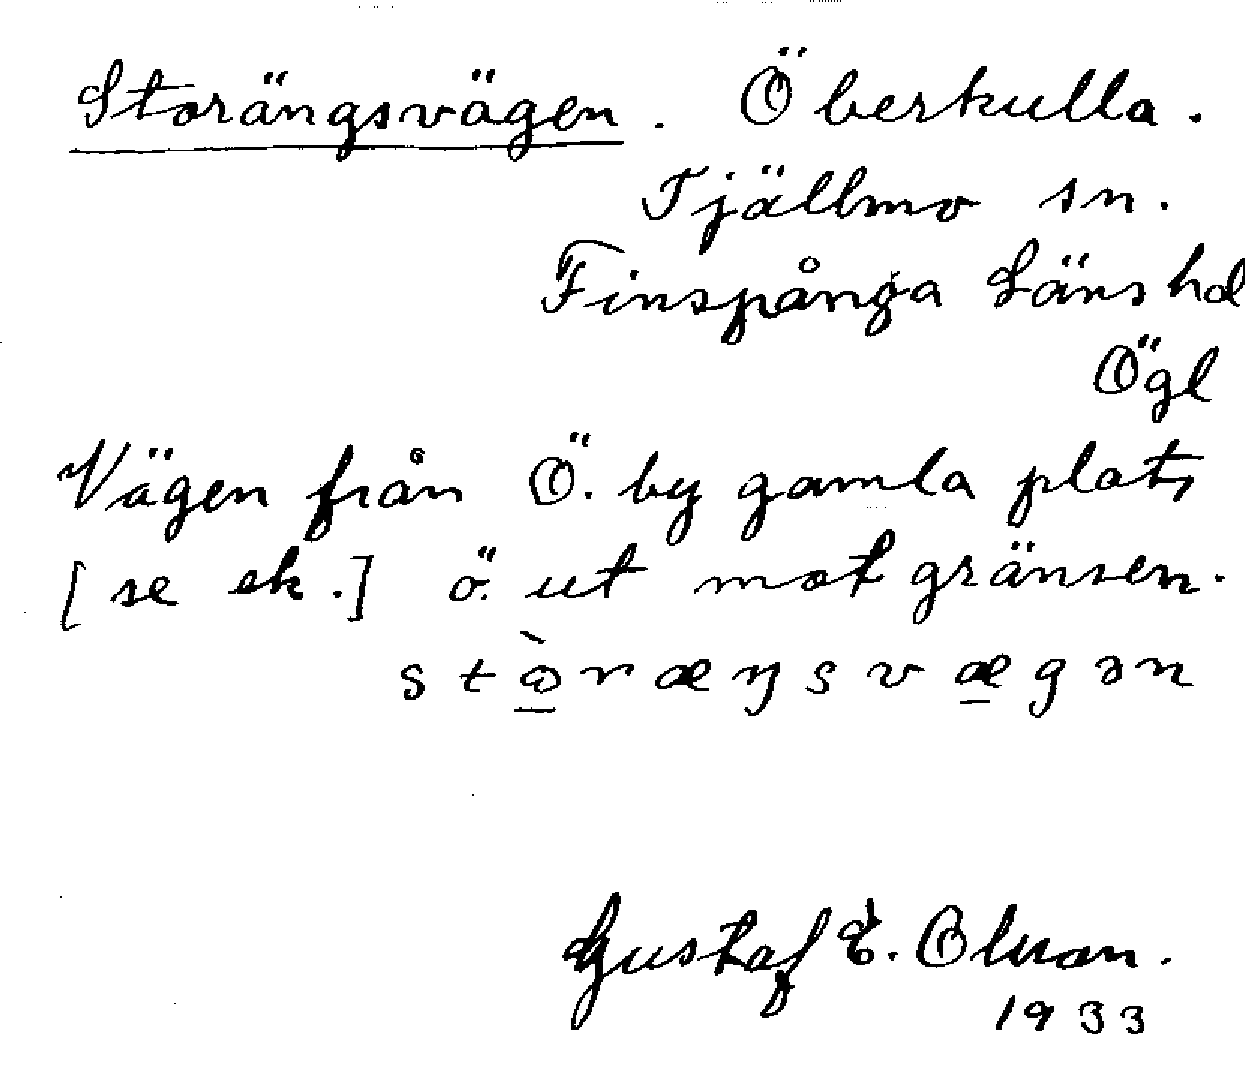 Storängsvägen. Öberkulla.
Tjällmo sn.
Finspånga Läns hd
Ögl
Vägen från Ö. by gamla plats
[se ek.] ö. ut mot gränsen.
stɷ̀ræŋsvægən
Gustaf E. Olsson.
1933